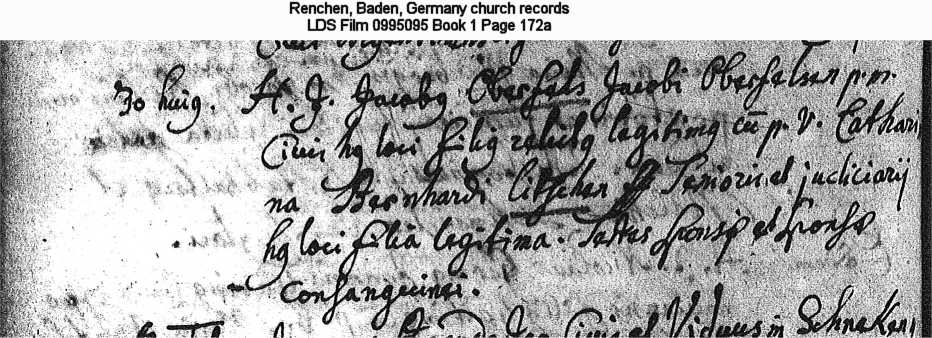 Renchen, Baden, Germany church records
LDS Film 0995095 Book 1 Page 172a
30 huig. H. J. Jacobg Oberfels Jacobi Oberfelsen p.m.
Civis hg loci filig relictg legitimg cũ p. V. Cathari
na Bernhardi Senioris et judiciarij
hg loci filia legitima. Testes sponsi et sponsæ
consanguinei.
Civis et Viduus in